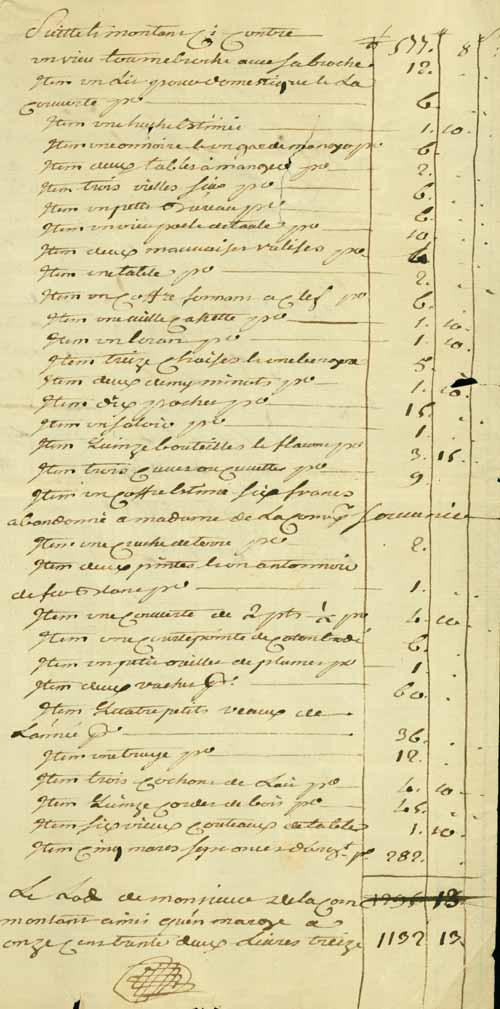 Suitte & montant Cy Contre # 577. 8
un vieu tournebroche avec sa broche 12.
Item un Lit pour domestique & La
Couverte po 6.
Item une huche Estimée 1. 10.
Item une armoire & un po 6.
Item deux tables a manger po 2.
Item trois vielles po 6.
Item un petit Bureau po 6.
Item un vieu poele de taule po 10.
Item deux mauvaises valises po 6
Item une table po 2.
Item un Coffre fermant a Clef po 6.
Item une vielle Casette po 1. 10.
Item un po 1. 10.
Item treize Chaises & une 5.
Item deux demy minots po 1. 10.
Item dix poches po 15.
Item un saloir po 1.
Item Quinze bouteilles & flacons po 3. 15.
Item trois Cuves ou Cuvettes po 9
Item un Coffre Estimé Six francs
abandonné a madame de La Souvenir
Item une Cruche de terre po 2.
Item deux pintes & un antonnoir
de fer Blanc po 1.
Item une Couverte de 2 pts ½ po 4. 10
Item une Courtepointe de Coton 6.
Item un petit oreiller de plumes po 1
Item deux vaches po. 60.
Item Quatre petits veaux de
L'année po 36.
Item une truye po 12.
Item trois Cochons de Lait po 4. 10.
Item Quinze Cordes de bois po 45.
Item Six vieux Couteaux de table 1. 10.
Item Cinq marcs Sept onces d'argt. po 282.
Le de monsieur de la Corne 13
montant ainsi qu'en marge a
onze Cent trante deux Livres treize 1132 13.